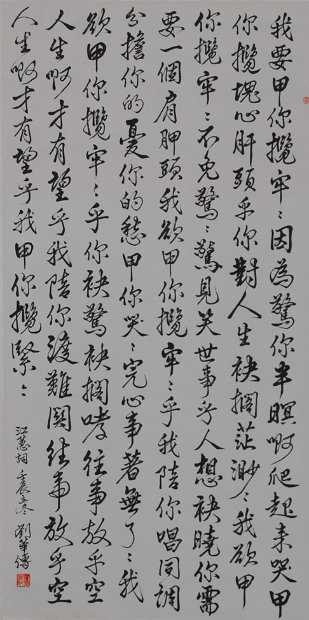 我要甲你攬牢〻因為驚你半暝啊爬起來哭甲
你攬塊心肝頭乎你對人生袂擱茫渺〻我欲甲
你攬牢〻不免驚〻驚見笑世事乎人想袂曉你需
要一個肩胛頭我欲甲你攬牢〻乎我陪你唱同調
分擔你的憂你的愁甲你哭〻完心事著無了〻我
欲甲你攬牢〻乎你袂驚袂擱哮往事放乎空
人生啊才有望乎我陪你渡難關往事放乎空
人生啊才有望乎我甲你攬緊〻
江蕙詞 壬辰冬 劉華傳